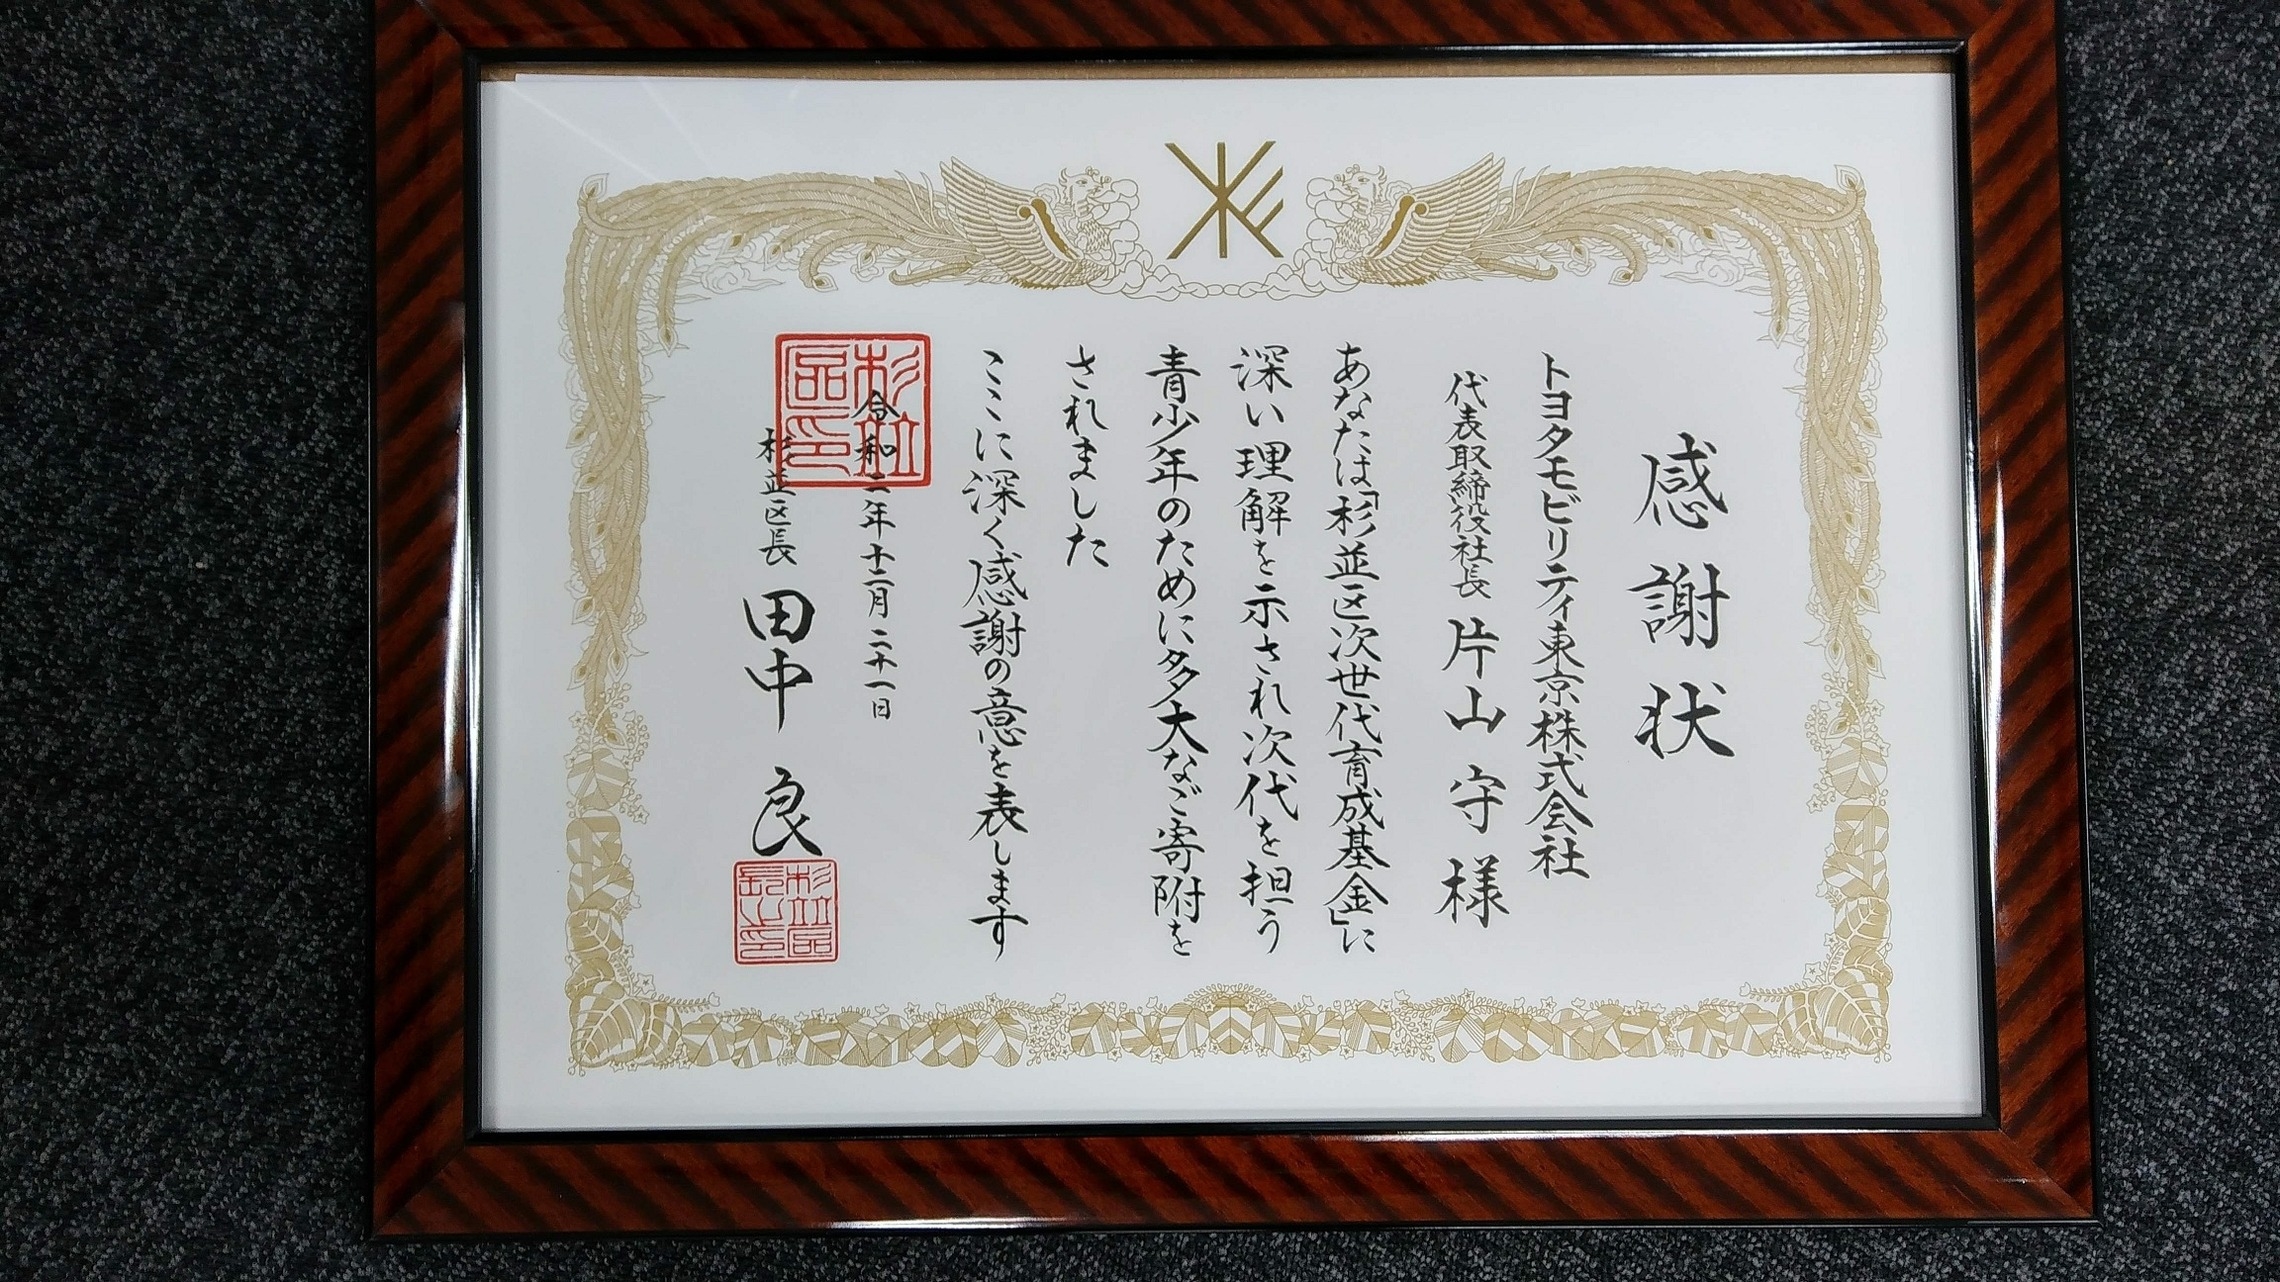 感謝状
トヨタモビリティ東京株式会社
代表取締役社長 片山守様
あなたは「杉並区次世代育成基金」に
深い理解を示され次代を担う
青少年のために多大なご寄附を
されました
ここに深く感謝の意を表します
令和二年十二月二十一日
杉並区長 田中良
杉並区印
杉並区長之印